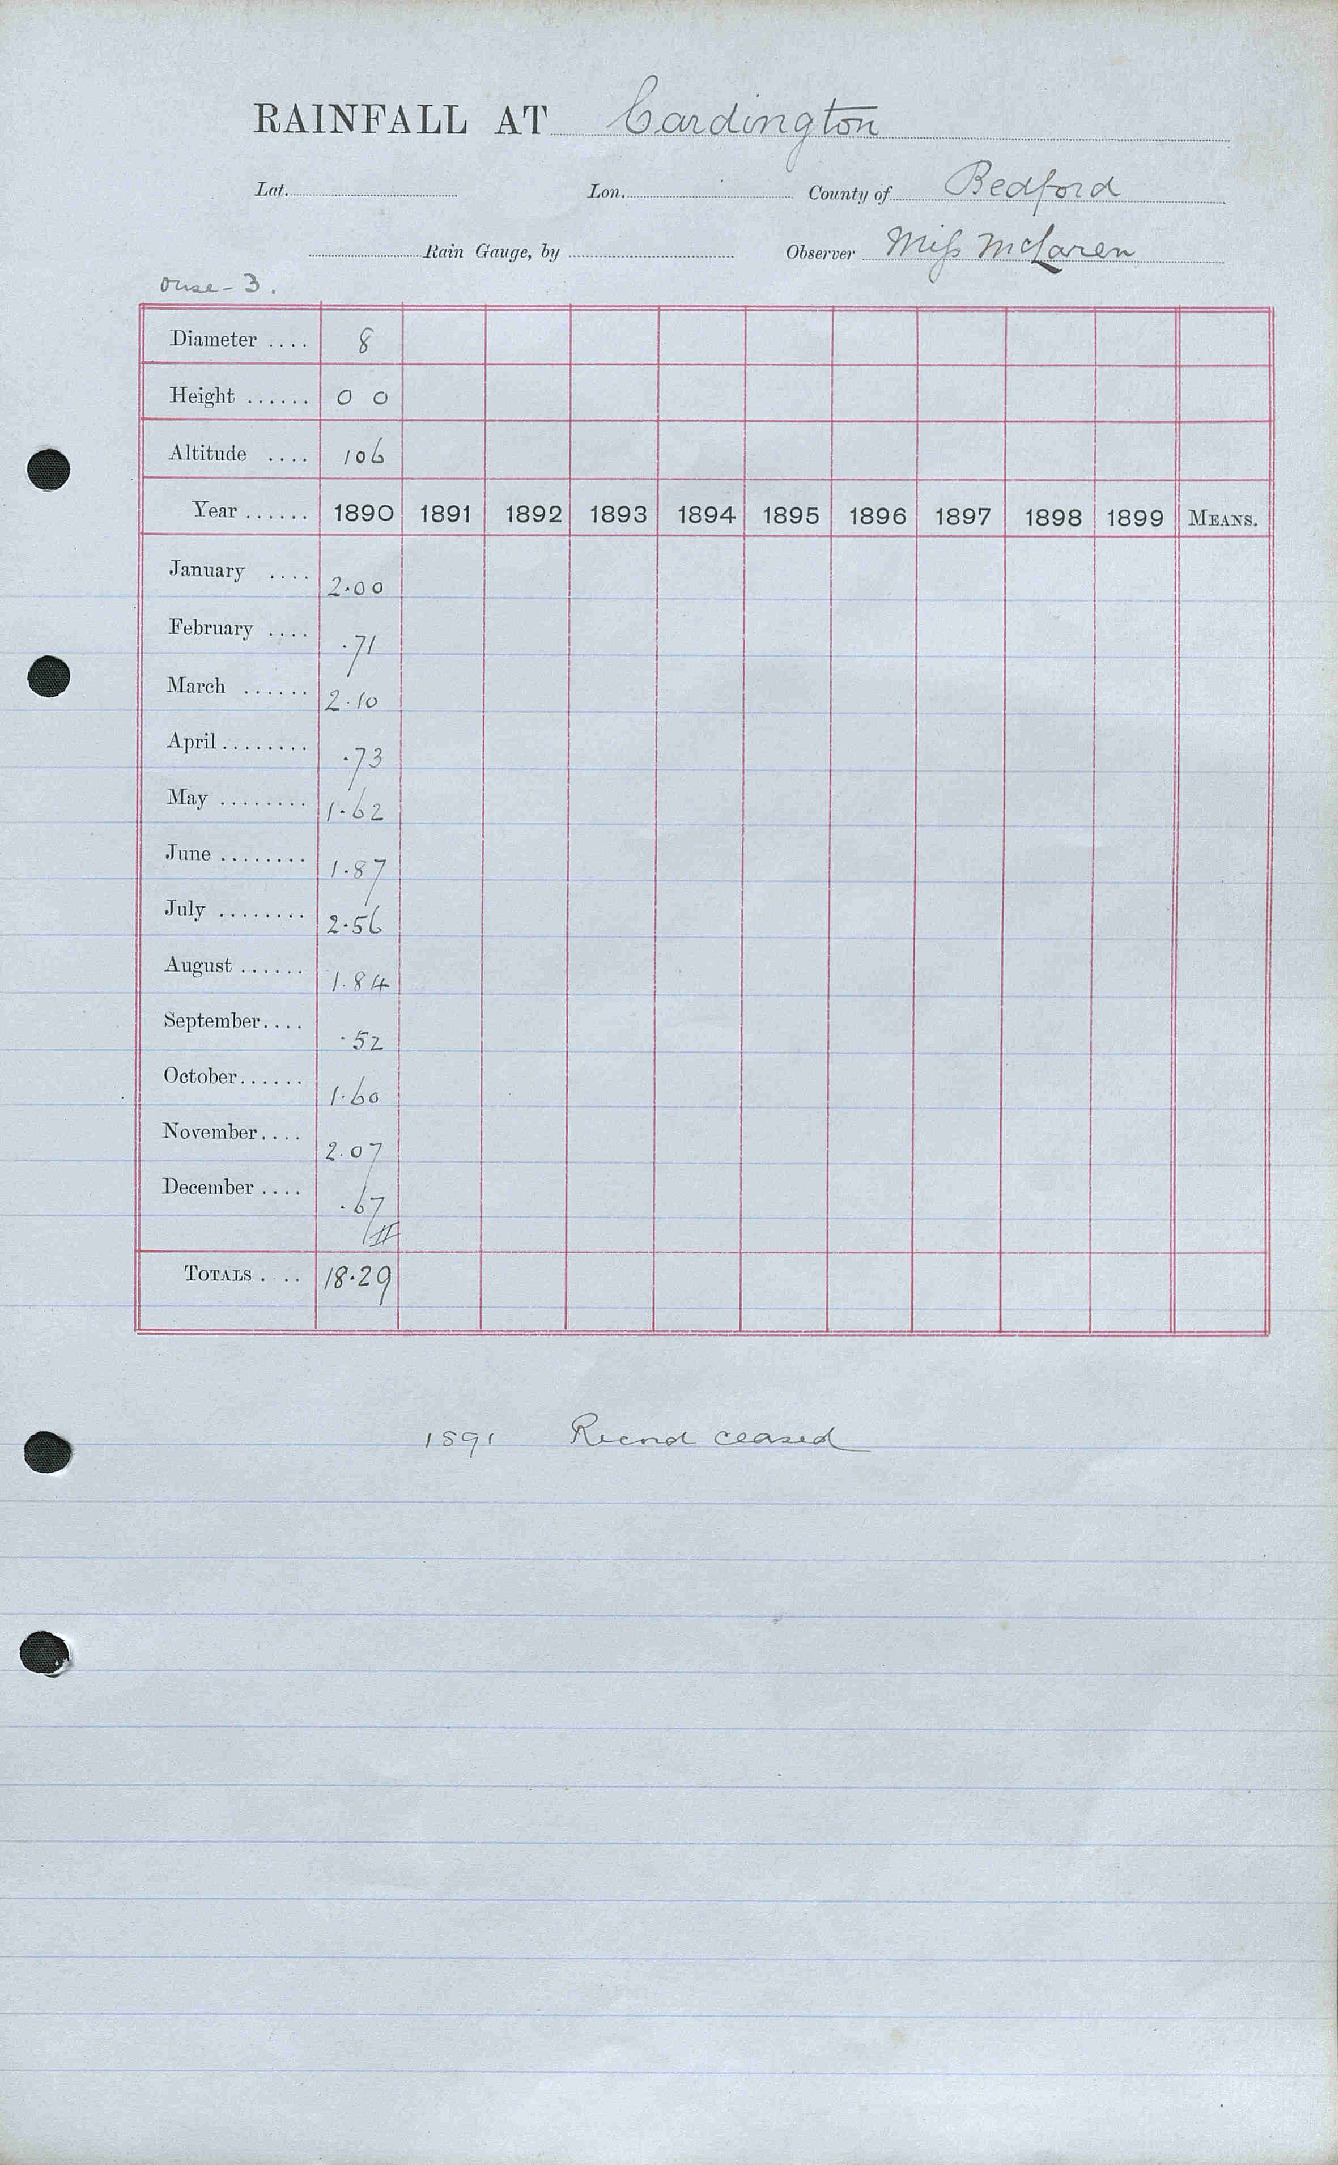 RAINFALL AT Cardington
Lat. Lon. County of Bedford
Rain Gauge, by Observer Miss McLaren
Ouse - 3.
Diameter .... 8
Height ...... 0 0
Altitude .... 106
Year ...... 1890 1891 1892 1893 1894 1895 1896 1897 1898 1899 MEANS.
January .... 2.00
February .... .71
March ...... 2.10
April ........ .73
May ........ 1.62
June ........ 1.87
July ........ 2.56
August ...... 1.84
September .... .52
October ...... 1.60
November .... 2.07
December .... .67
TOTALS . ... 18.29
1891 Record ceased